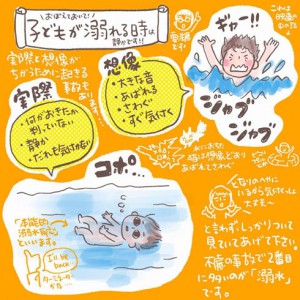 おぼえておいて!
子どもが溺れる時は
静かです!!
これは
映画
中の話
ギャー!!
実際と想像が
ちがうために起きる
事故も
あります…
想像
・大きな音
・あばれる
・さわぐ
・すぐ気付く
実際
・何がおきたか
判っていない
・静か
・だれも気付かない
ジャブ
ジャブ
コポ…
「本能的
溺水反応」と
いいます。
I'll be
back
ターミネーター
かな
となりのへやに
いるから気付くっしょ
大丈夫〜
と言わずしっかりついて
見ていてあげて下さい。
不慮の事故で2番目
に多いのが「溺水」
です。